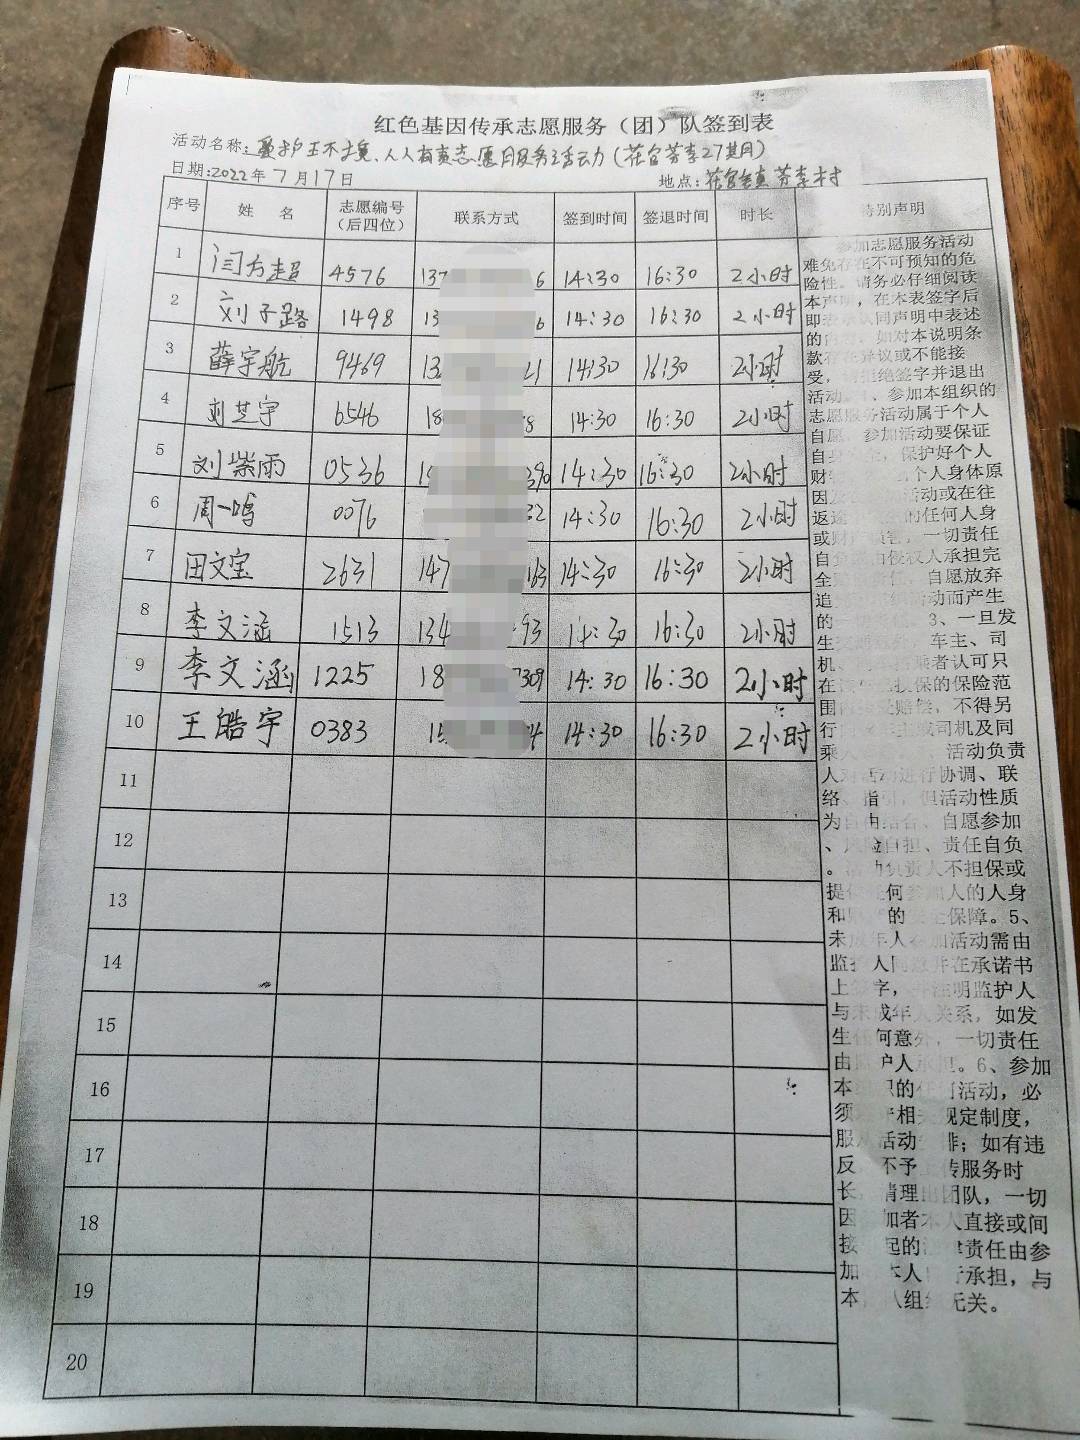 红色基因传承志愿服务（团）队签到表
活动名称：爱护环境、人人有责志愿服务活动（花官芳李27其月）
日期：2022年7月17日 地点：花官镇芳李村
序号 姓名 志愿编号（后四位） 联系方式 签到时间 签退时间 时长 特别声明
1 闫方超 4576 137 6 14:30 16:30 2小时
2 刘子路 1498 13 6 14:30 16:30 2小时
3 薛宇航 9469 13 21 14:30 16:30 2小时
4 刘芝宇 6546 18 8 14:30 16:30 2小时
5 刘紫雨 0536 1 390 14:30 16:30 2小时
6 周一鸣 0076 32 14:30 16:30 2小时
7 田文宝 2631 147 163 14:30 16:30 2小时
8 李文涵 1513 134 93 14:30 16:30 2小时
9 李文涵 1225 18 7309 14:30 16:30 2小时
10 王皓宇 0383 15 4 14:30 16:30 2小时
11
12
13
14
15
16
17
18
19
20
参加志愿服务活动
难免存在不可预知的危
险性。请务必仔细阅读
本声 ，在本表签字后
即表 认同声明中表述
的内 ，如对本说明条
款存 异议或不能接
受，请拒绝签字并退出
活动。1、参加本组织的
志愿服务活动属于个人
自愿，参加活动要保证
自身 全，保护好个人
财 个人身体原
因 活动或在往
返途 的任何人身
或财 损害，一切责任
自负 由侵权人承担完
全 自愿放弃
追 活动而产生
的一 3、一旦发
生 ，车主、司
机、 乘者认可只
在 投保的保险范
围 赔偿，不得另
行 司机及同
乘人 活动负责
人对活动进行协调、联
络、指引，但活动性质
为自由结合、自愿参加
、风险自担、责任自负
。活动负责人不担保或
提供任何参加人的人身
和 的安全保障。5、
未成年人参加活动需由
监护人同意并在承诺书
上签字，并注明监护人
与未成年人关系，如发
生任何意外，一切责任
由监护人承担。6、参加
本组织的任何活动，必
须遵守相关规定制度，
服从活动 排；如有违
反，不予上传服务时
长，清理出团队，一切
因参加者本人直接或间
接引起的法律责任由参
加 本人自行承担，与
本 队组织无关。